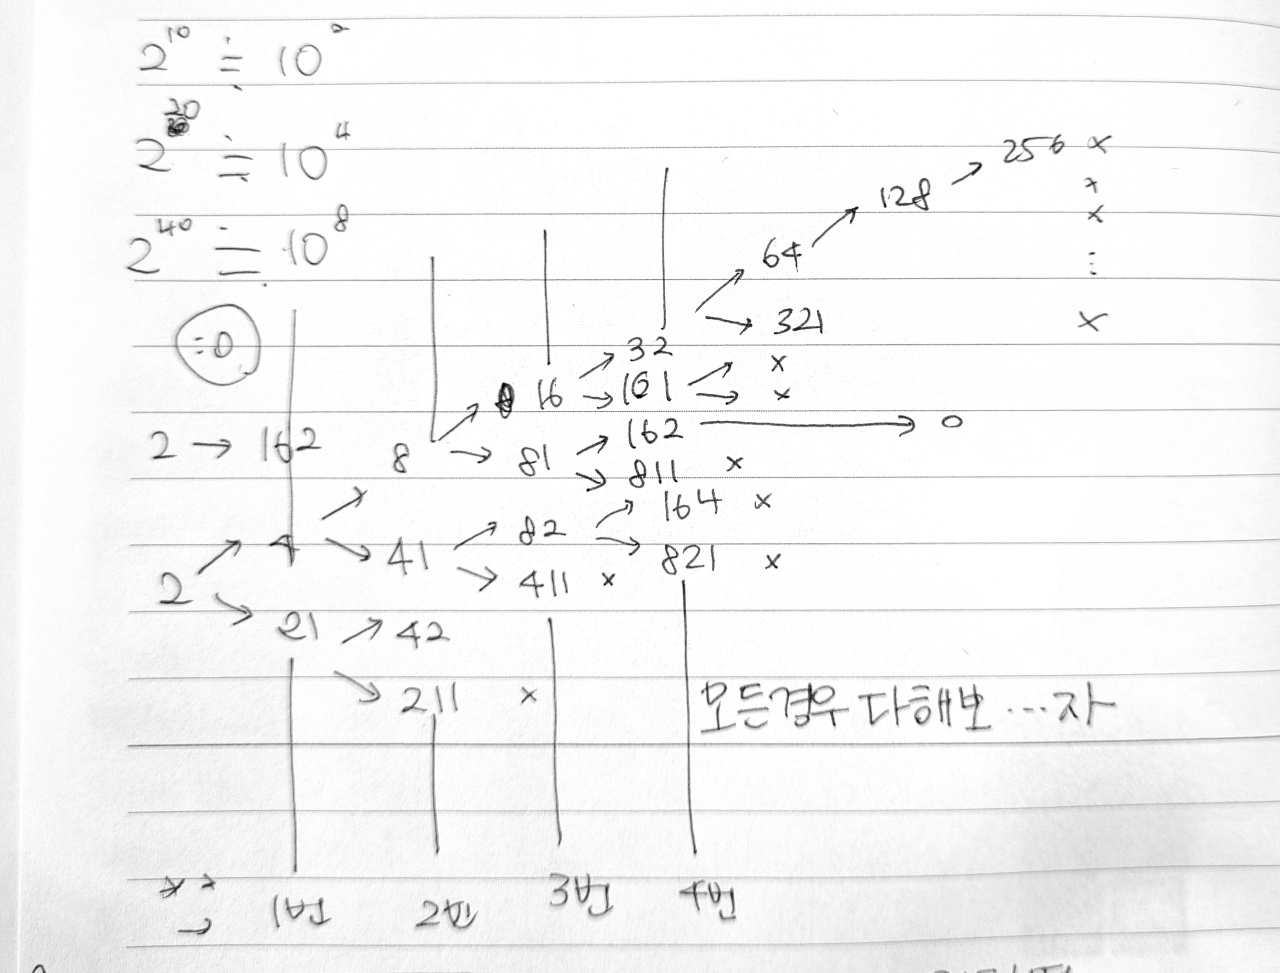 2^10 ≒ 10^2
2^20 ≒ 10^4
2^40 ≒ 10^8
=0
256 x
128 x
x
64 ⋮
321 x
32
16 161 x x
2 → 162 8 81 162 → 0
811 x
164 x
4 41 82
821 x
2 411 x
21 42
211 x
모든경우 다해보...자
x 2
→
1 2 3 4